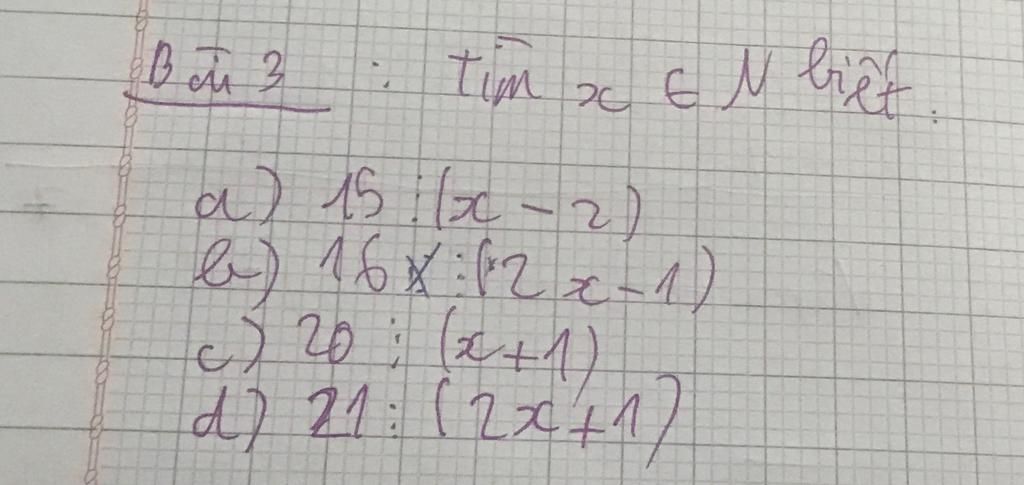 Bài 3 : Tìm x ∈ N biết.
a) 15 ⋮ (x - 2)
b) 16 ⋮ (2x - 1)
c) 20 ⋮ (x + 1)
d) 21 ⋮ (2x + 1)